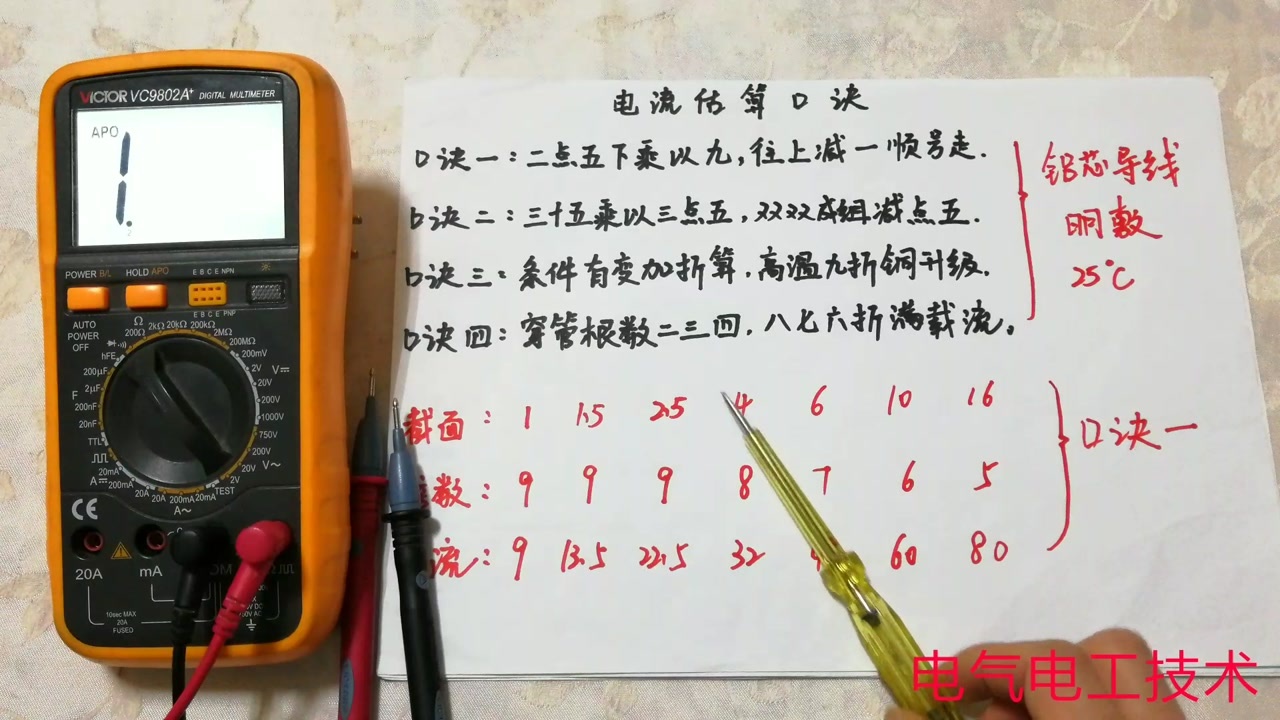 VICTOR VC9802A+ DIGITAL MULTIMETER
APO
1.
POWER B/L HOLD APO E B C E NPN
E B C E PNP
AUTO POWER OFF
Ω
200Ω 2kΩ 20kΩ 200kΩ 2MΩ 200MΩ
hFE
200mV
V
2V
20V
200V
1000V
750V
200V
V~
20V
2V
TEST
F
200μF
2μF
200nF
20nF
TTL
20mA
A
200mA
20A 20A 200mA 20mA
A~
CE
20A mA
10sec MAX
20A
FUSED
电流估算口诀
口诀一:二点五下乘以九,往上减一顺号走.
口诀二:三十五乘以三点五,双双成组减点五.
口诀三:条件有变加折算,高温九折铜升级.
口诀四:穿管根数二三四,八七六折满载流。
铝芯导线
明敷
25°C
截面: 1 1.5 2.5 4 6 10 16
数: 9 9 9 8 7 6 5
流: 9 13.5 22.5 32 60 80
口诀一
电气电工技术